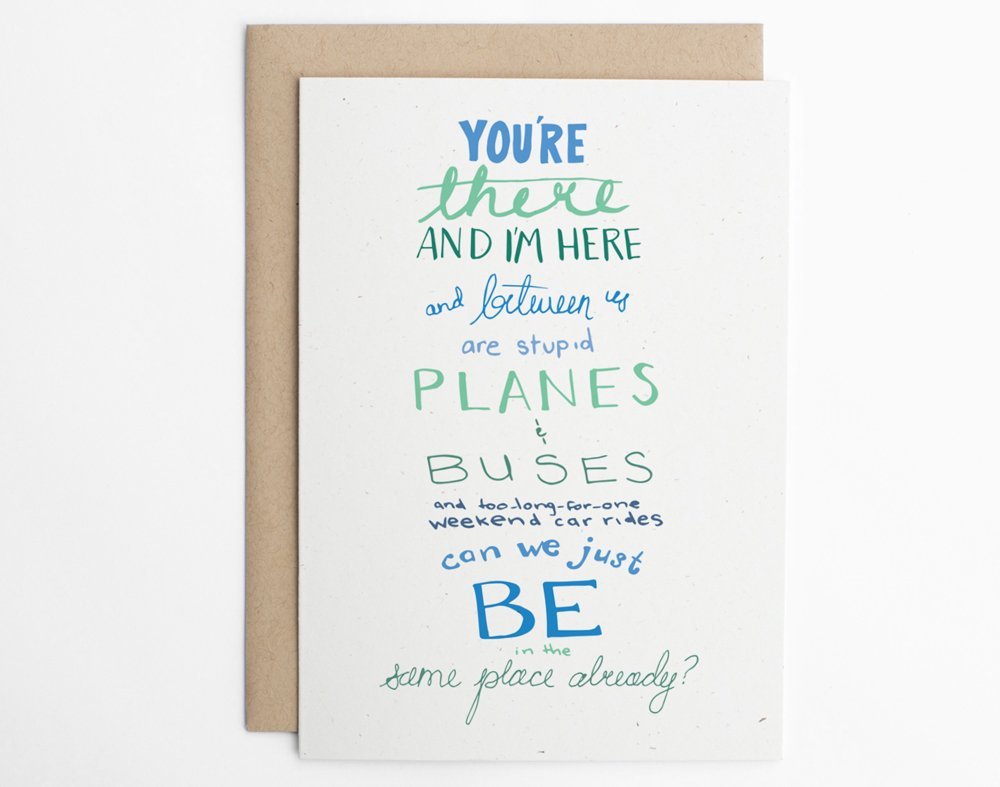 YOU'RE
there
AND I'M HERE
and between us
are stupid
PLANES
&
BUSES
and too-long-for-one
weekend car rides
can we just
BE
in the
same place already?